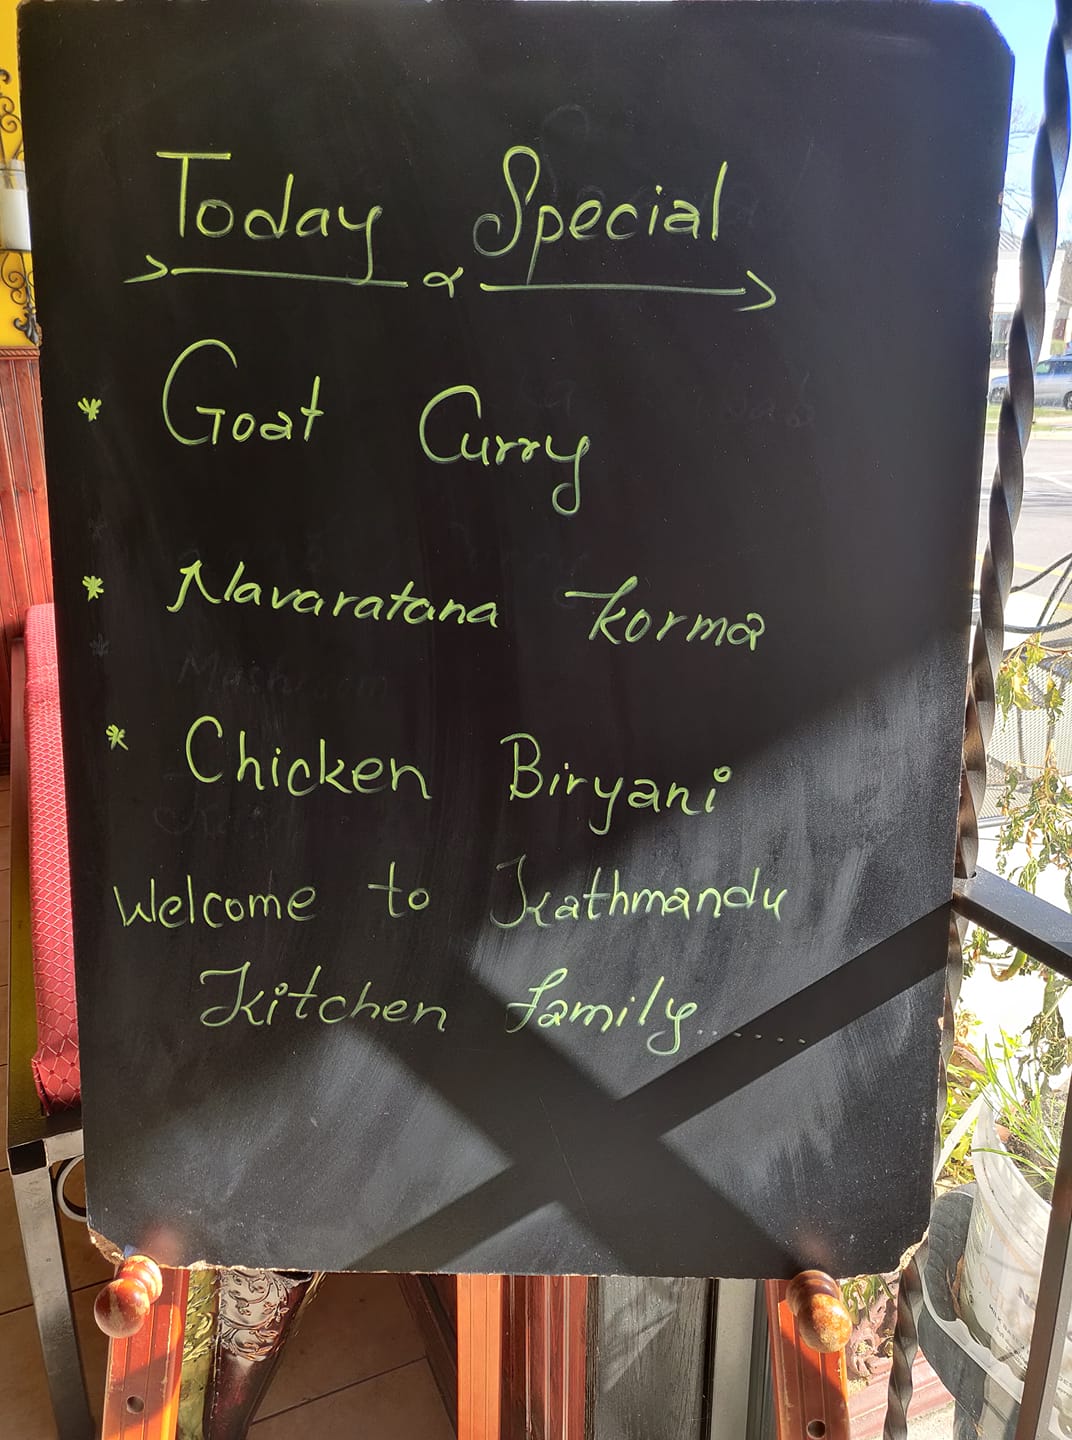 Today Special
* Goat Curry
* Navaratana Korma
* Chicken Biryani
Welcome to Kathmandu
Kitchen family.......